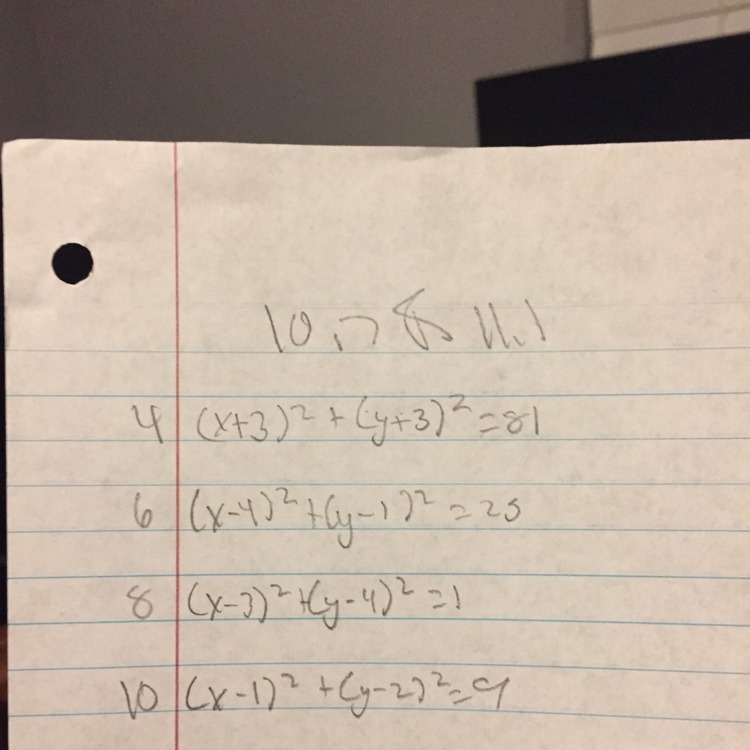 10.7 & 11.1
4 (x+3)² + (y+3)² = 81
6 (x-4)² + (y-1)² = 25
8 (x-3)² + (y-4)² = 1
10 (x-1)² + (y-2)² = 9